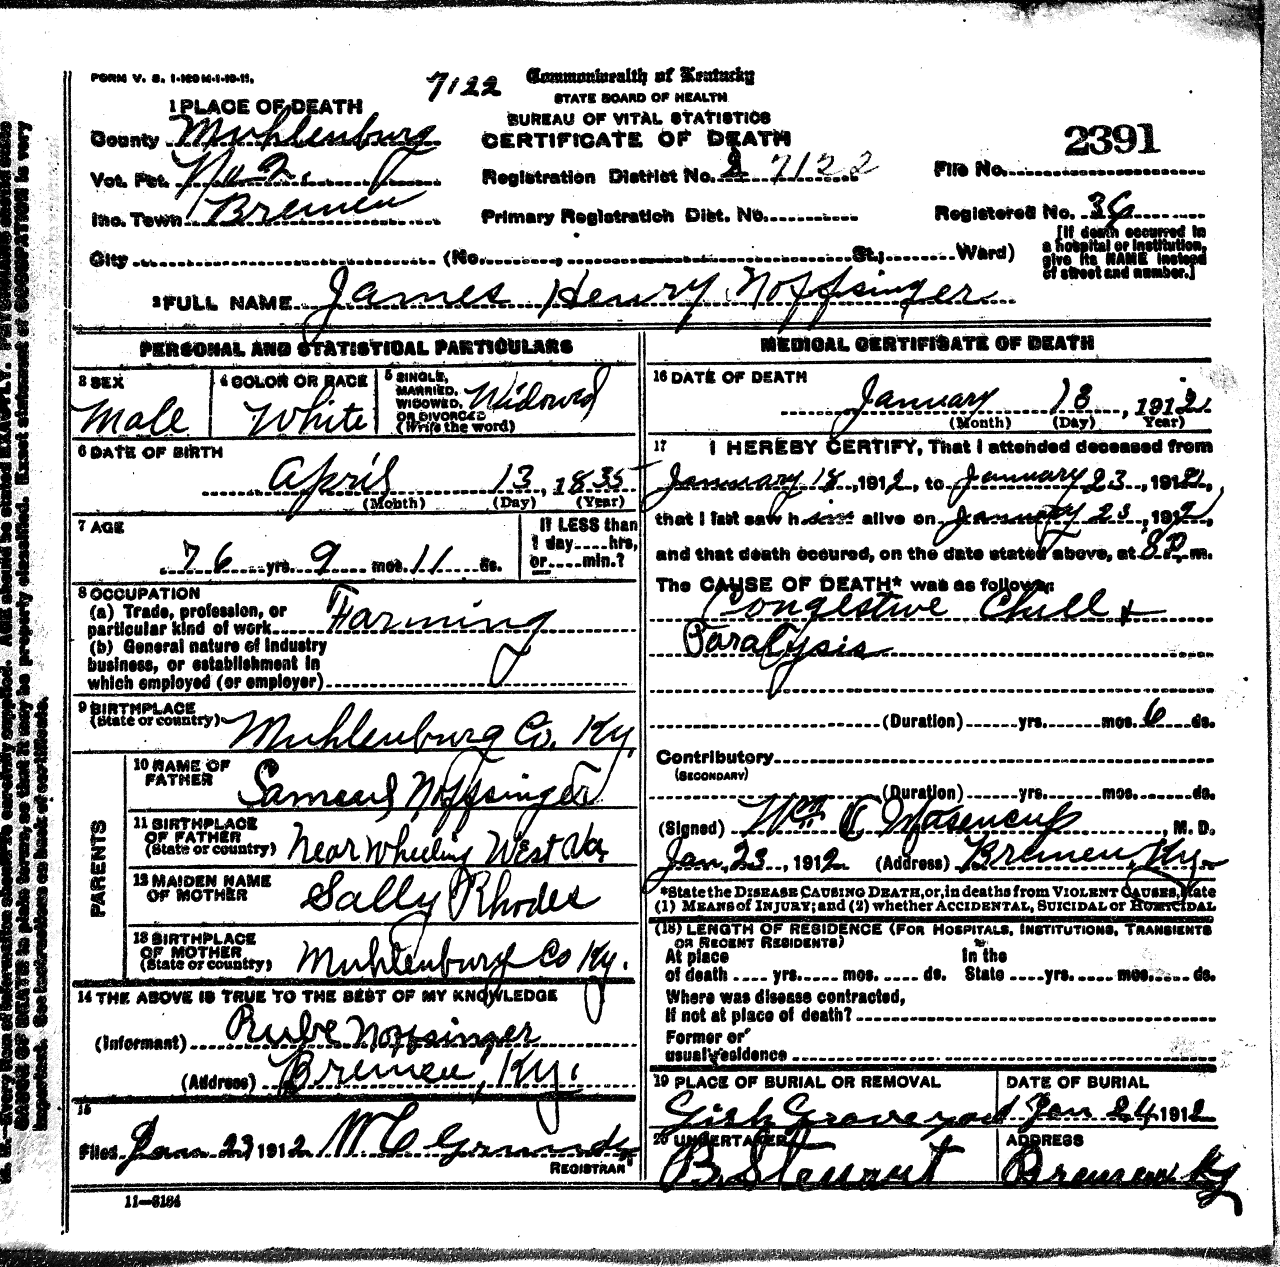 FORM V. S. 1-125M-1-10-11.
7122
Commonwealth of Kentucky
STATE BOARD OF HEALTH
BUREAU OF VITAL STATISTICS
CERTIFICATE OF DEATH
1 PLACE OF DEATH
County Muhlenburg
Vot. Pct. No 2.
Inc. Town Bremen
City (No. St.; Ward)
Registration District No. 7122
Primary Registration Dist. No.
2391
File No.
Registered No. 36
[If death occurred in
a hospital or institution,
give its NAME instead
of street and number.]
2 FULL NAME James Henry Noffsinger
PERSONAL AND STATISTICAL PARTICULARS
3 SEX
Male
4 COLOR OR RACE
White
5 SINGLE,
MARRIED,
WIDOWED,
OR DIVORCED
(Write the word)
Widowed
6 DATE OF BIRTH
April 13, 1835
(Month) (Day) (Year)
7 AGE
76 yrs. 9 mos. 11 ds.
If LESS than
1 day....hrs,
or....min.?
8 OCCUPATION
(a) Trade, profession, or
particular kind of work Farming
(b) General nature of industry
business, or establishment in
which employed (or employer)
9 BIRTHPLACE
(State or country) Muhlenburg Co. Ky.
PARENTS
10 NAME OF
FATHER Samuel Noffsinger
11 BIRTHPLACE
OF FATHER
(State or country) Near Wheeling West Va
12 MAIDEN NAME
OF MOTHER Sally Rhodes
13 BIRTHPLACE
OF MOTHER
(State or country) Muhlenburg Co Ky.
14 THE ABOVE IS TRUE TO THE BEST OF MY KNOWLEDGE
(Informant) Rube Noffsinger
(Address) Bremen, Ky.
15
Filed Jan 23 1912
REGISTRAR
11—6184
MEDICAL CERTIFICATE OF DEATH
16 DATE OF DEATH
January 1912
(Month) (Day) Year)
17 I HEREBY CERTIFY, That I attended deceased from
January 18, 1912, to January 23, 1912,
that I last saw him alive on January 23, 1912,
and that death occured, on the date stated above, at 8 P. m.
The CAUSE OF DEATH* was as follows:
Congestive Chill +
Paralysis
(Duration) yrs. mos. 6 ds.
Contributory
(SECONDARY)
(Duration) yrs. mos. ds.
(Signed) Wm C , M. D.
Jan, 23, 1912 (Address) Bremen, Ky.
*State the DISEASE CAUSING DEATH, or, in deaths from VIOLENT CAUSES, state
(1) MEANS of INJURY; and (2) whether ACCIDENTAL, SUICIDAL or HOMICIDAL
(18) LENGTH OF RESIDENCE (FOR HOSPITALS, INSTITUTIONS, TRANSIENTS
OR RECENT RESIDENTS)
At place In the
of death .... yrs. mos. ds. State yrs. mos. ds.
Where was disease contracted,
If not at place of death?
Former or
usual residence
19 PLACE OF BURIAL OR REMOVAL
Gish Graveyard
DATE OF BURIAL
Jan 24, 1912
20 UNDERTAKER
B. Stewart
ADDRESS
Bremen Ky
N. B.—Every item of information should be carefully supplied. AGE should be stated EXACTLY. PHYSICIANS should state
CAUSE OF DEATH in plain terms, so that it may be properly classified. Exact statement of OCCUPATION is very
important. See instructions on back of certificate.